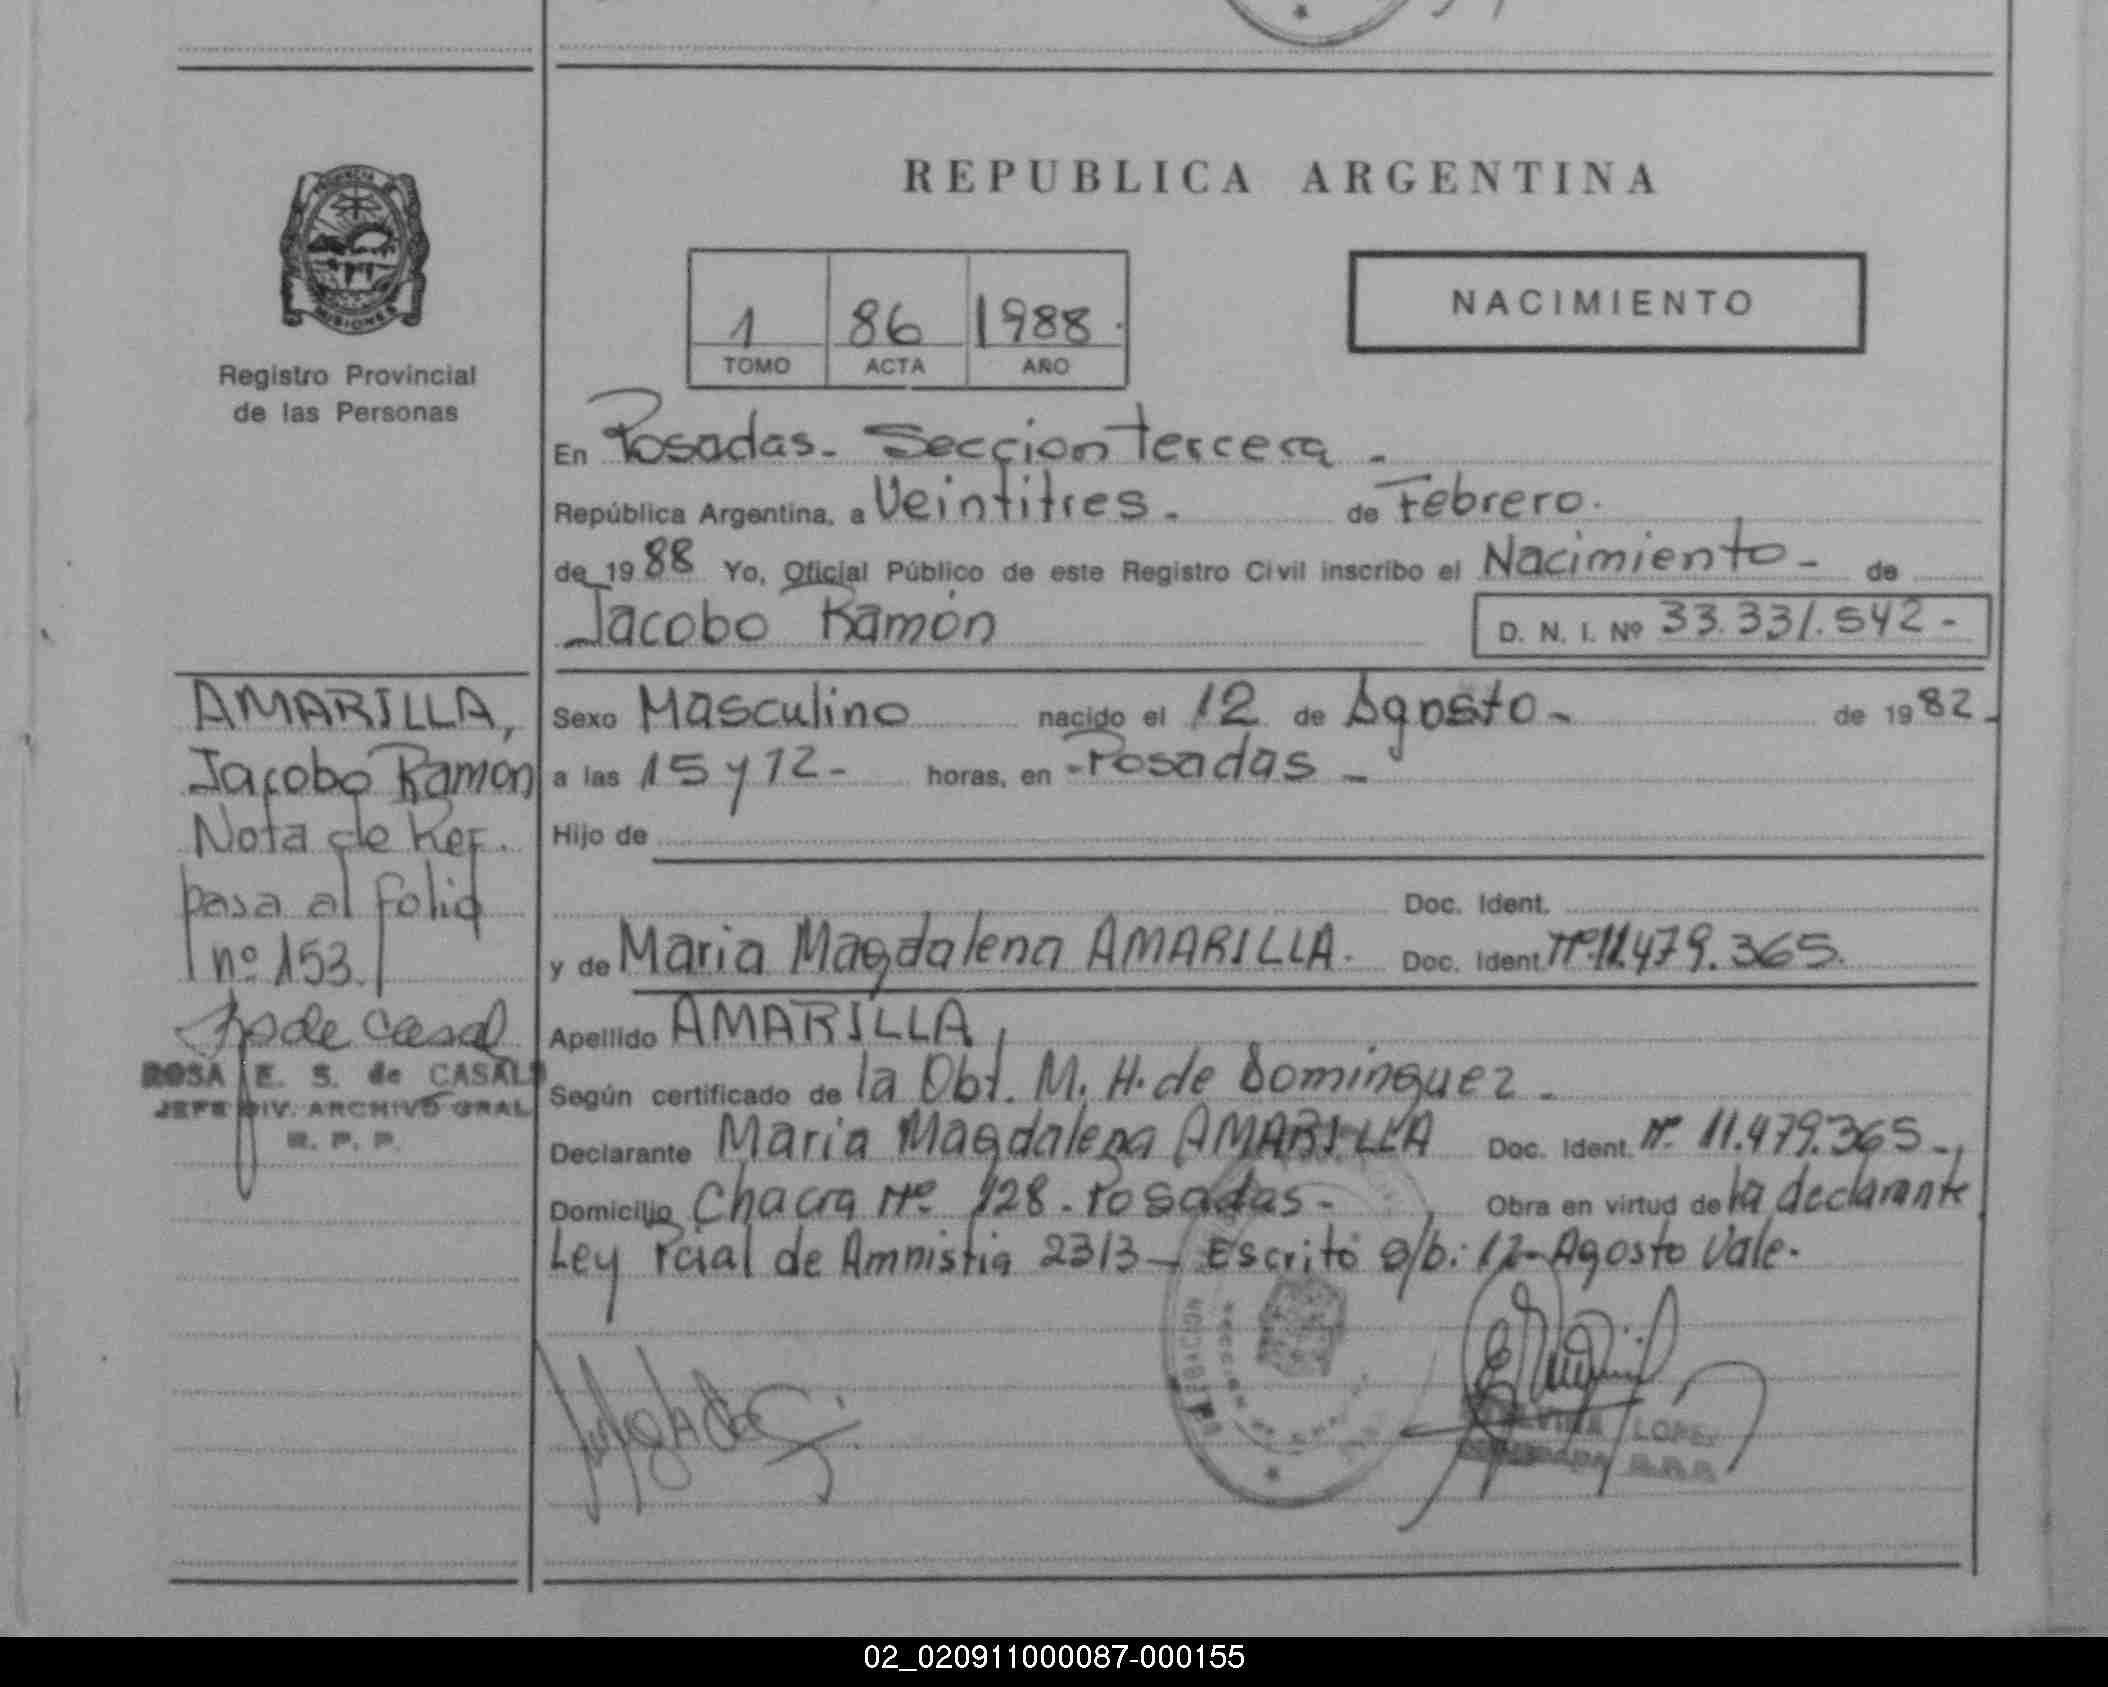 PROVINCIA DE
MISIONES
Registro Provincial
de las Personas
AMARILLA,
Jacobo Ramon
Nota de Ref.
pasa al folio
nº 153.
Rsde Casal
ROSA E. S. de CASAL
JEFE DIV. ARCHIVO GRAL
R. P. P.
REPUBLICA ARGENTINA
1 86 1988.
TOMO ACTA AÑO
NACIMIENTO
En Posadas - Seccion Tercera -
República Argentina, a Veintitres - de Febrero.
de 1988 Yo, Oficial Público de este Registro Civil inscribo el Nacimiento - de
Jacobo Ramón D. N. I. Nº 33.331.542 -
Sexo Masculino nacido el 12 de Agosto - de 1982 -
a las 15 y 12 - horas, en - Posadas -
Hijo de
Doc. Ident.
y de Maria Magdalena AMARILLA. Doc. Ident. Nº 11.479.365.
Apellido AMARILLA,
Según certificado de la Obt. M. H. de Dominguez -
Declarante Maria Magdalena AMARILLA Doc. Ident. Nº 11.479.365 -,
Domicilio Chacra Nº 128 - Posadas - Obra en virtud de la declarante
Ley Pcial de Amnistia 2313 - Escrito s/b: 12 - Agosto Vale.
LOPEZ
02_020911000087-000155